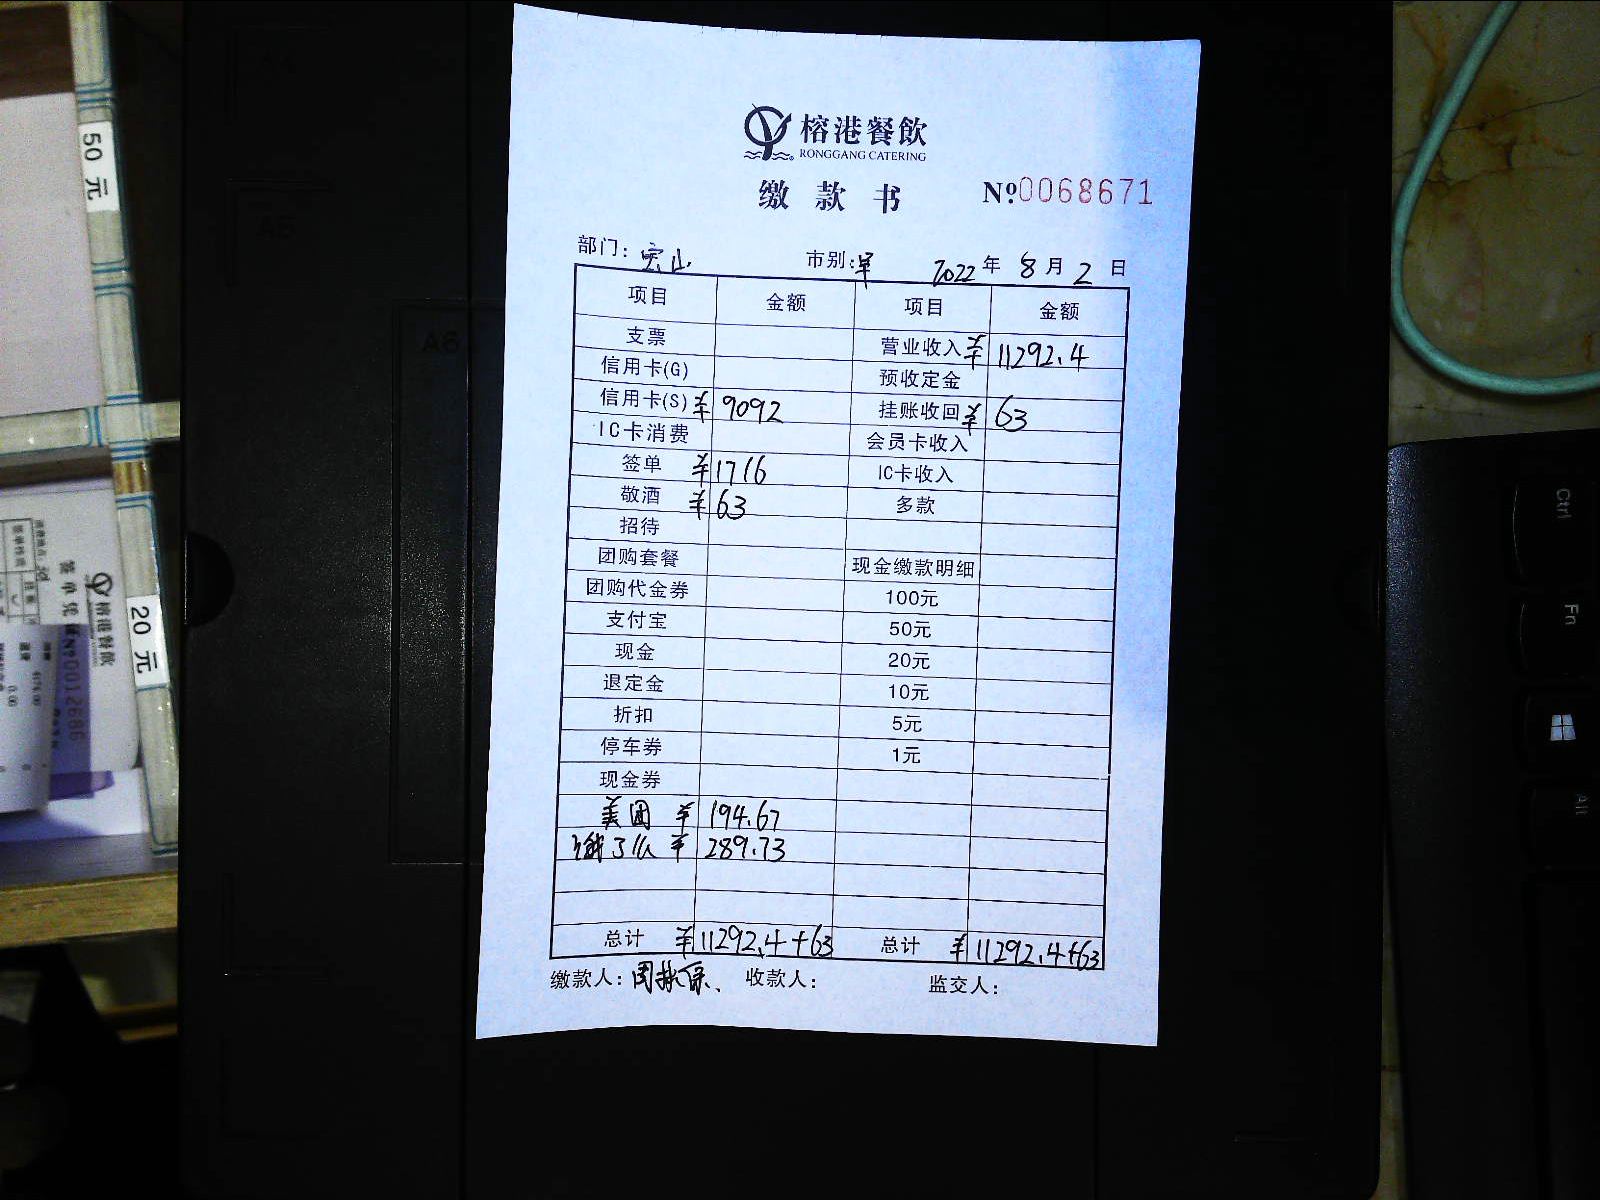 榕港餐飲
RONGGANG CATERING
缴款书 Nº0068671
部门: 宝山 市别: 早 2022年8月2日
项目 金额 项目 金额
支票 营业收入 ¥11292.4
信用卡(G) 预收定金
信用卡(S) ¥9092 挂账收回 ¥63
IC卡消费 会员卡收入
签单 ¥1716 IC卡收入
敬酒 ¥63 多款
招待
团购套餐 现金缴款明细
团购代金券 100元
支付宝 50元
现金 20元
退定金 10元
折扣 5元
停车券 1元
现金券
美团 ¥194.67
饿了么 ¥289.73
总计 ¥11292.4+63 总计 ¥11292.4+63
缴款人: 收款人: 监交人:
50元
20元
榕港餐飲
签单凭证
Nº0012686
A5
A6
Ctrl
Fn
Alt